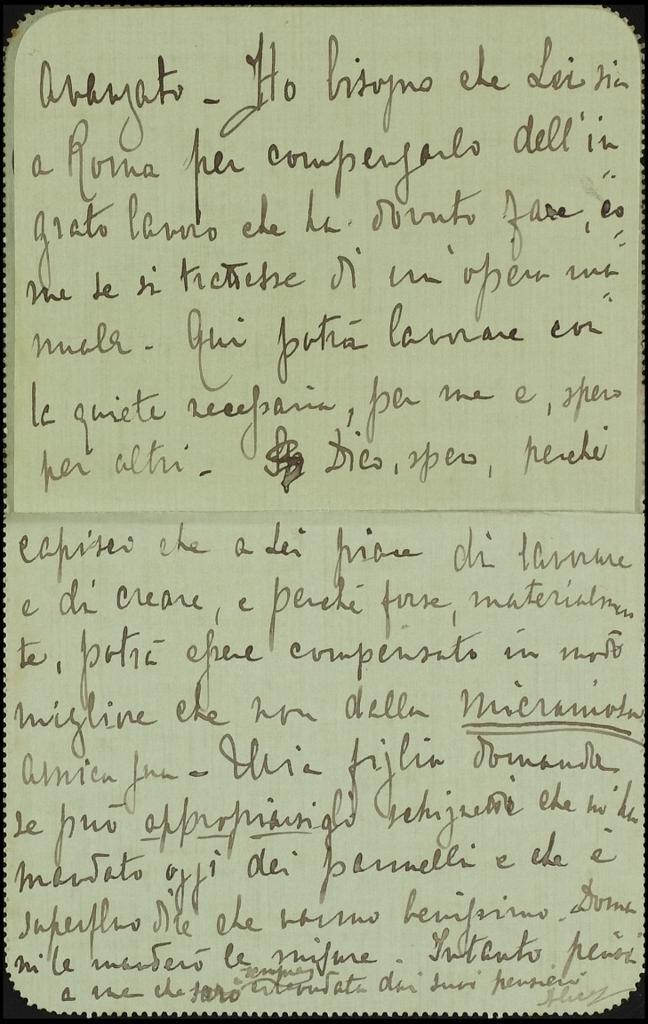 avanzato - Ho bisogno che Lei sia
a Roma per compensarlo dell'in
grato lavoro che ha dovuto fare, co=
me se si trattasse di un'opera ma=
nuale. Qui potrà lavorare con
la quiete necessaria, per me e, spero
per altri - Dico, spero, perché
capisco che a Lei piace di lavorare
e di creare, e perché forse, materialmen
te, potrà essere compensato in modo
migliore che non dalla
amica sua - Mia figlia domanda
se può appropriarsi schizzetti che mi ha
mandato oggi dei pannelli e che è
superfluo dire che vanno benissimo. Doma
ni le manderò le misure. Intanto pensi
a me che sarò sempre circondata dai suoi pensieri